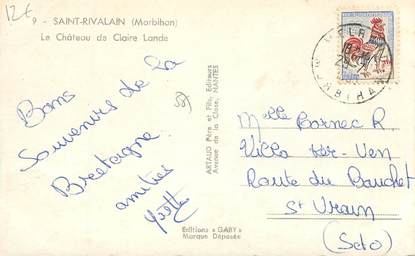 12€
9 - SAINT-RIVALAIN (Morbihan)
Le Château de Claire Lande
Bons
Souvenirs de la
Bretagne
amitiés
Yvette
ARTAUD Père et Fils, Editeurs
Avenue de la Close, NANTES
Editions « GABY »
Marque Déposée
MORBIHAN
Melle Bornec R.
Villa Ker-Ven
Route du Bouchet
St Vrain
(Seto)